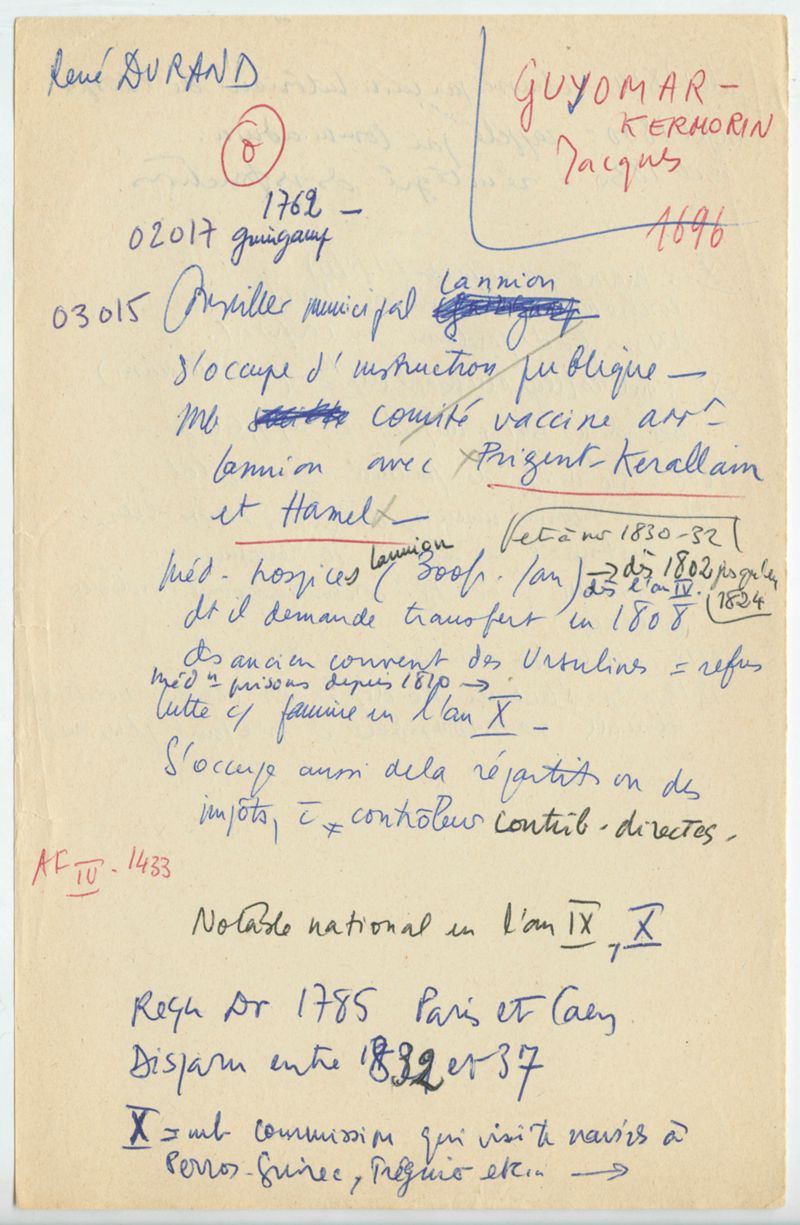 René DURAND
GUYOMAR-
KERMORIN
Jacques
1696
1762 —
02017 guingamp
Lannion
03015 Conseiller municipal
S'occupe d'instruction publique —
Mb comité vaccine arrt —
Lannion avec x Prigent-Kerallain
et Hamel x —
et à nv 1830-32
Méd. hospices Lannion (300f. /an) → dès 1802 jusqu'en
dès l'an IV. 1824
dt il demande transfert en 1808
ds ancien couvent des Ursulines = refus
Méd n prisons depuis 1810 →
Lutte c/ famine en l'an X —
S'occupe aussi de la répartition des
impôts, c̄ x contrôleur contrib. directes.
AF IV. 1433
Notable national en l'an IX, X
Reçu Dr 1785 Paris et Caen
Disparu entre 1832 et 37
X = mb commission qui visite navires à
Perros-Guirec, Tréguier etc... →